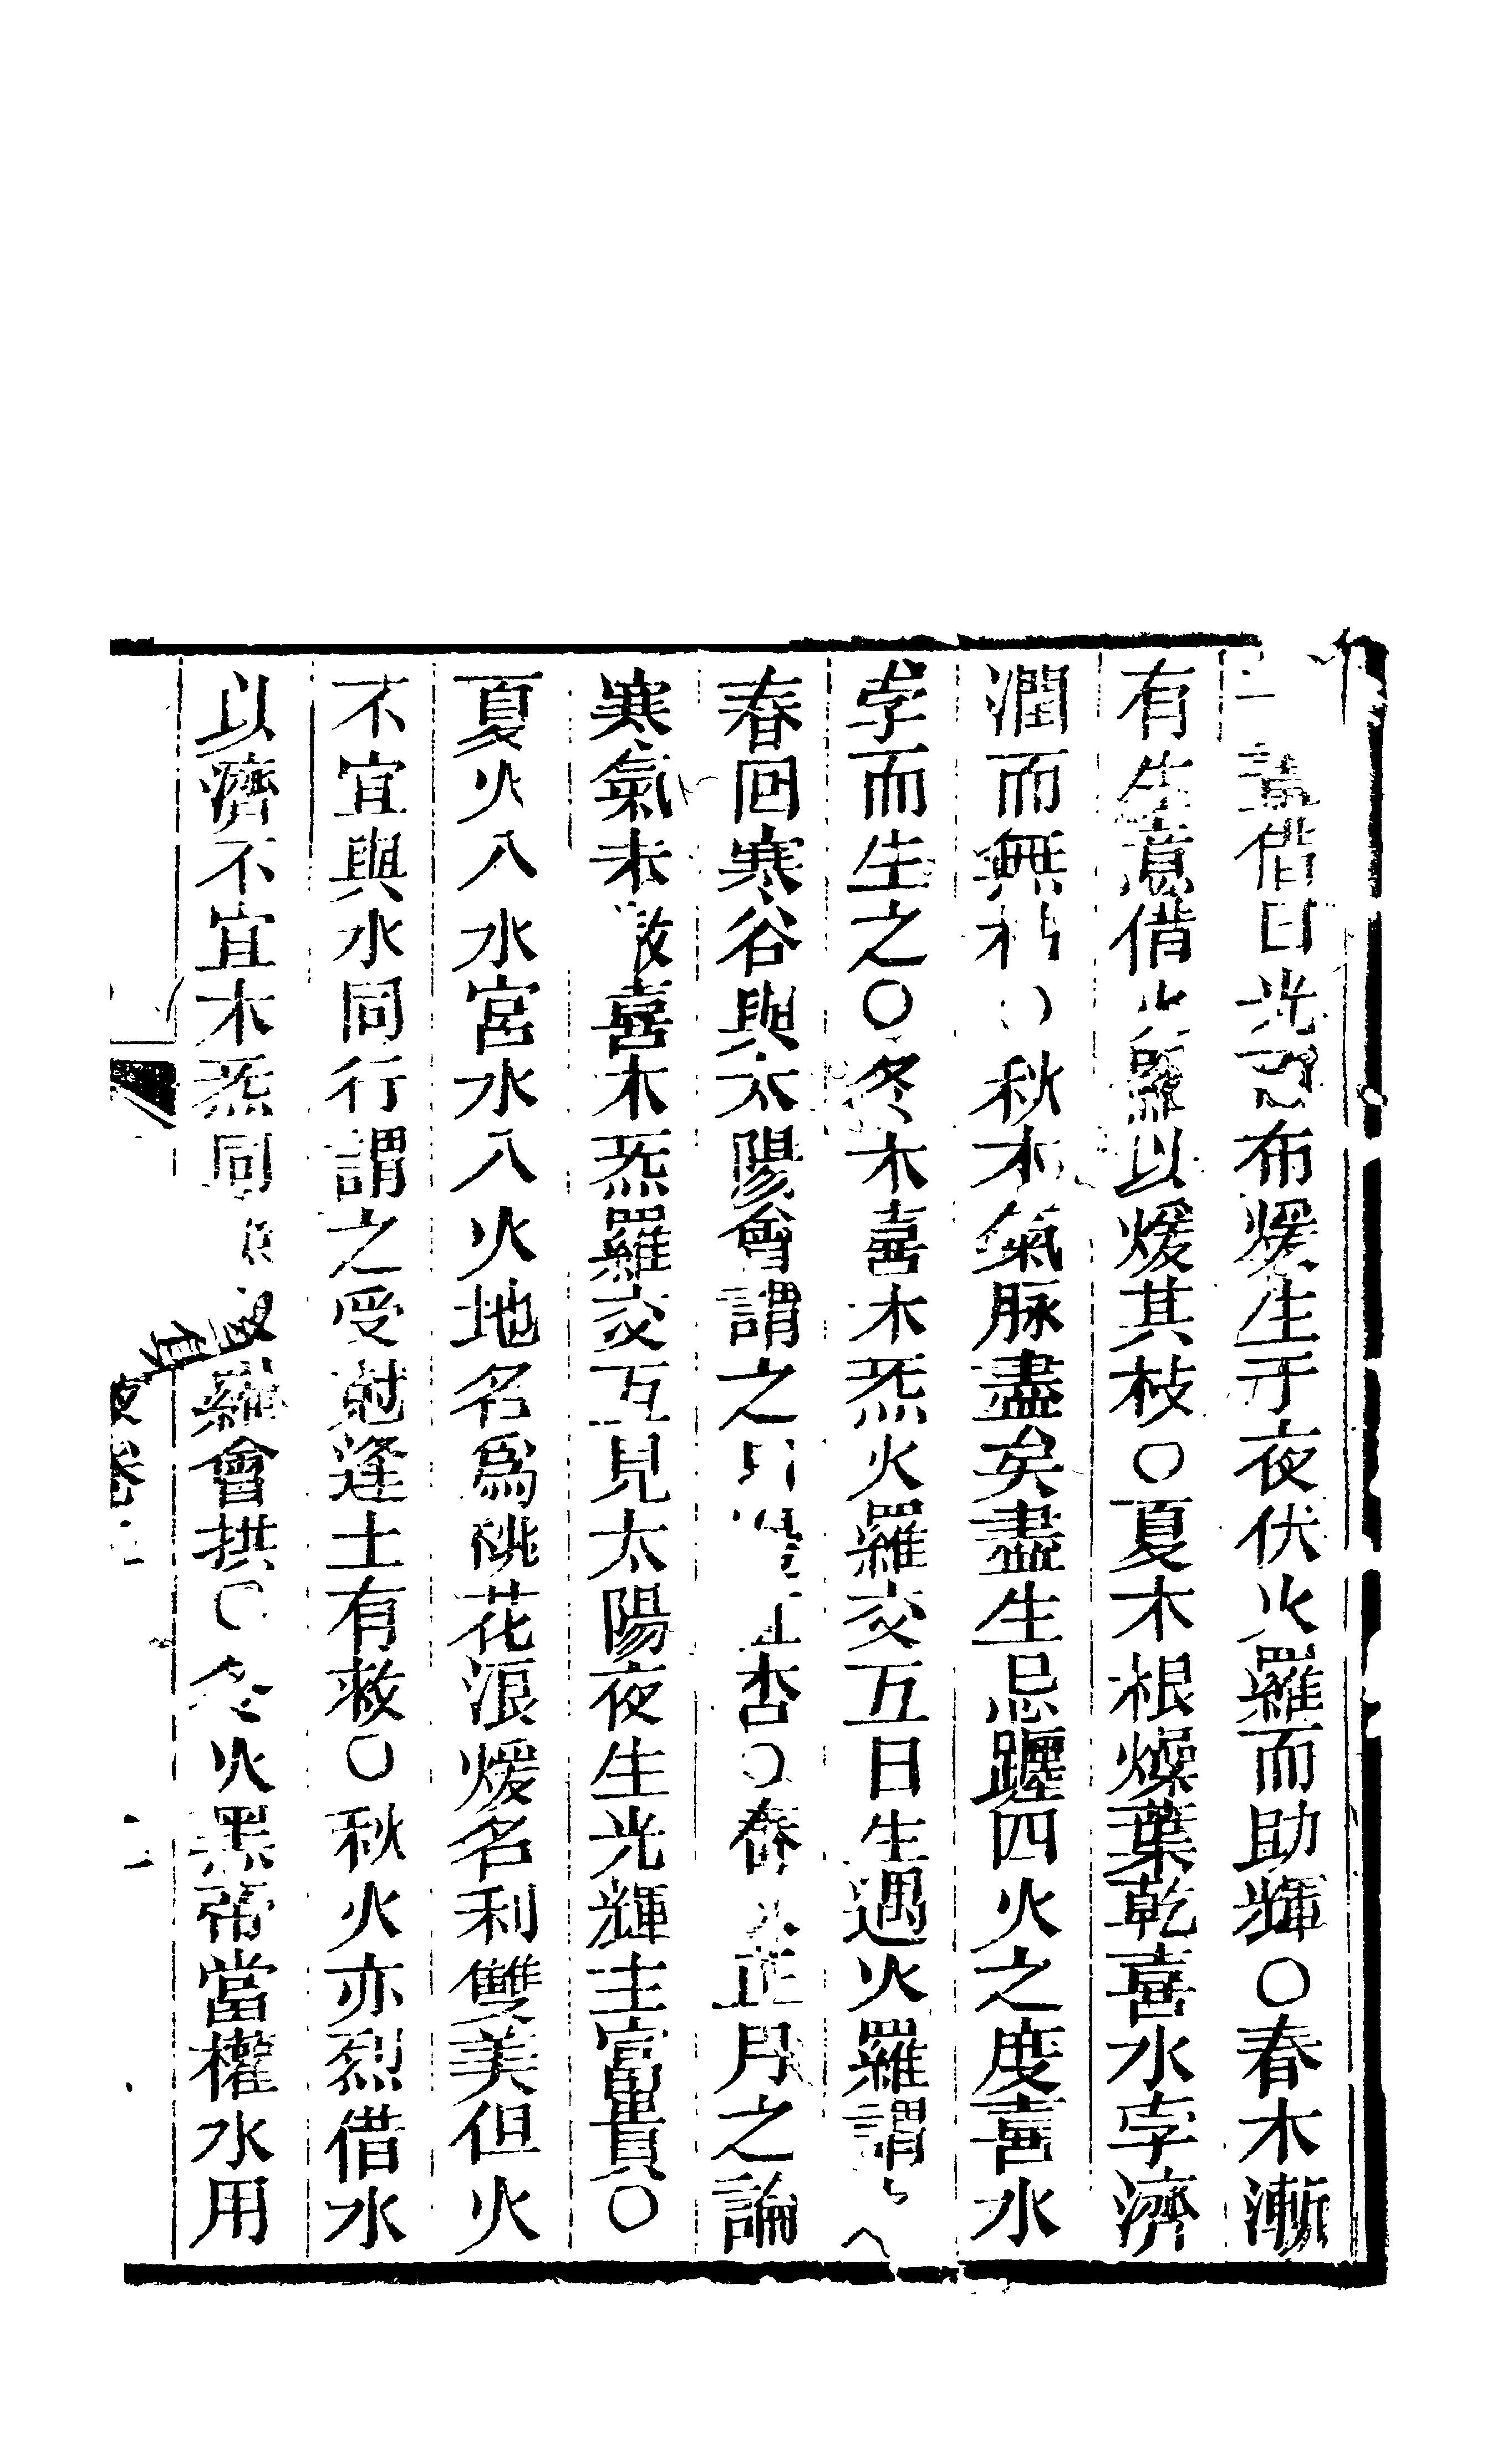 借日光布煖生于夜伏火羅而助輝○春木漸
有生意借火羅以煖其枝○夏木根燥葉乾喜水孛濟
潤而無枯○秋木氣脉盡矣盡生忌躔四火之度喜水
孛而生之○冬木喜木炁火羅交互日生遇火羅謂
春回寒谷與太陽會謂之杏○春正月之論
寒氣未散喜木炁羅交互見太陽夜生光輝主富貴○
夏火入水宮水入火地名爲桃花浪煖名利雙美但火
不宜與水同行謂之受尅逢土有救○秋火亦烈借水
以濟不宜木炁同羅會拱○冬火黑帝當權水用